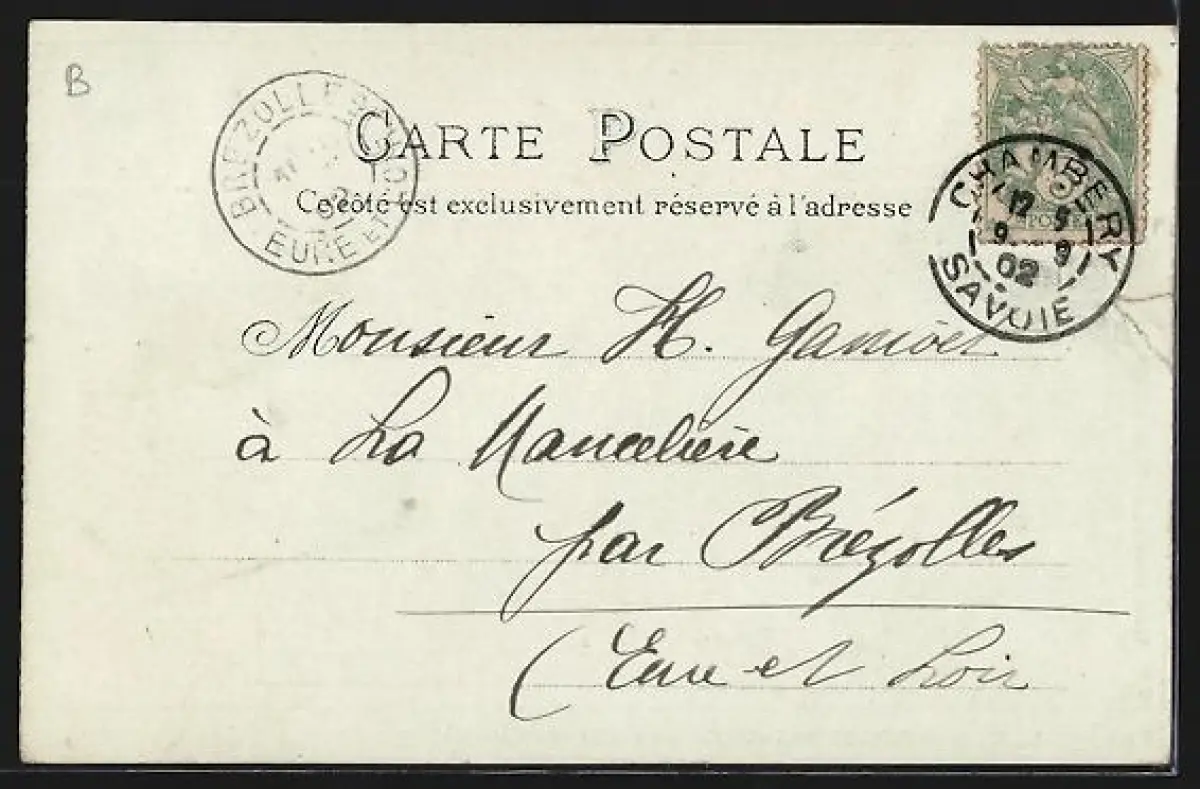 B
BREZOLLES
EURE ET LOIR
02
CARTE POSTALE
Ce côté est exclusivement réservé à l'adresse
CHAMBERY
12 5
9 9
02
SAVOIE
Monsieur H.
à La Mancelière
par Brézolles
(Eure et Loir